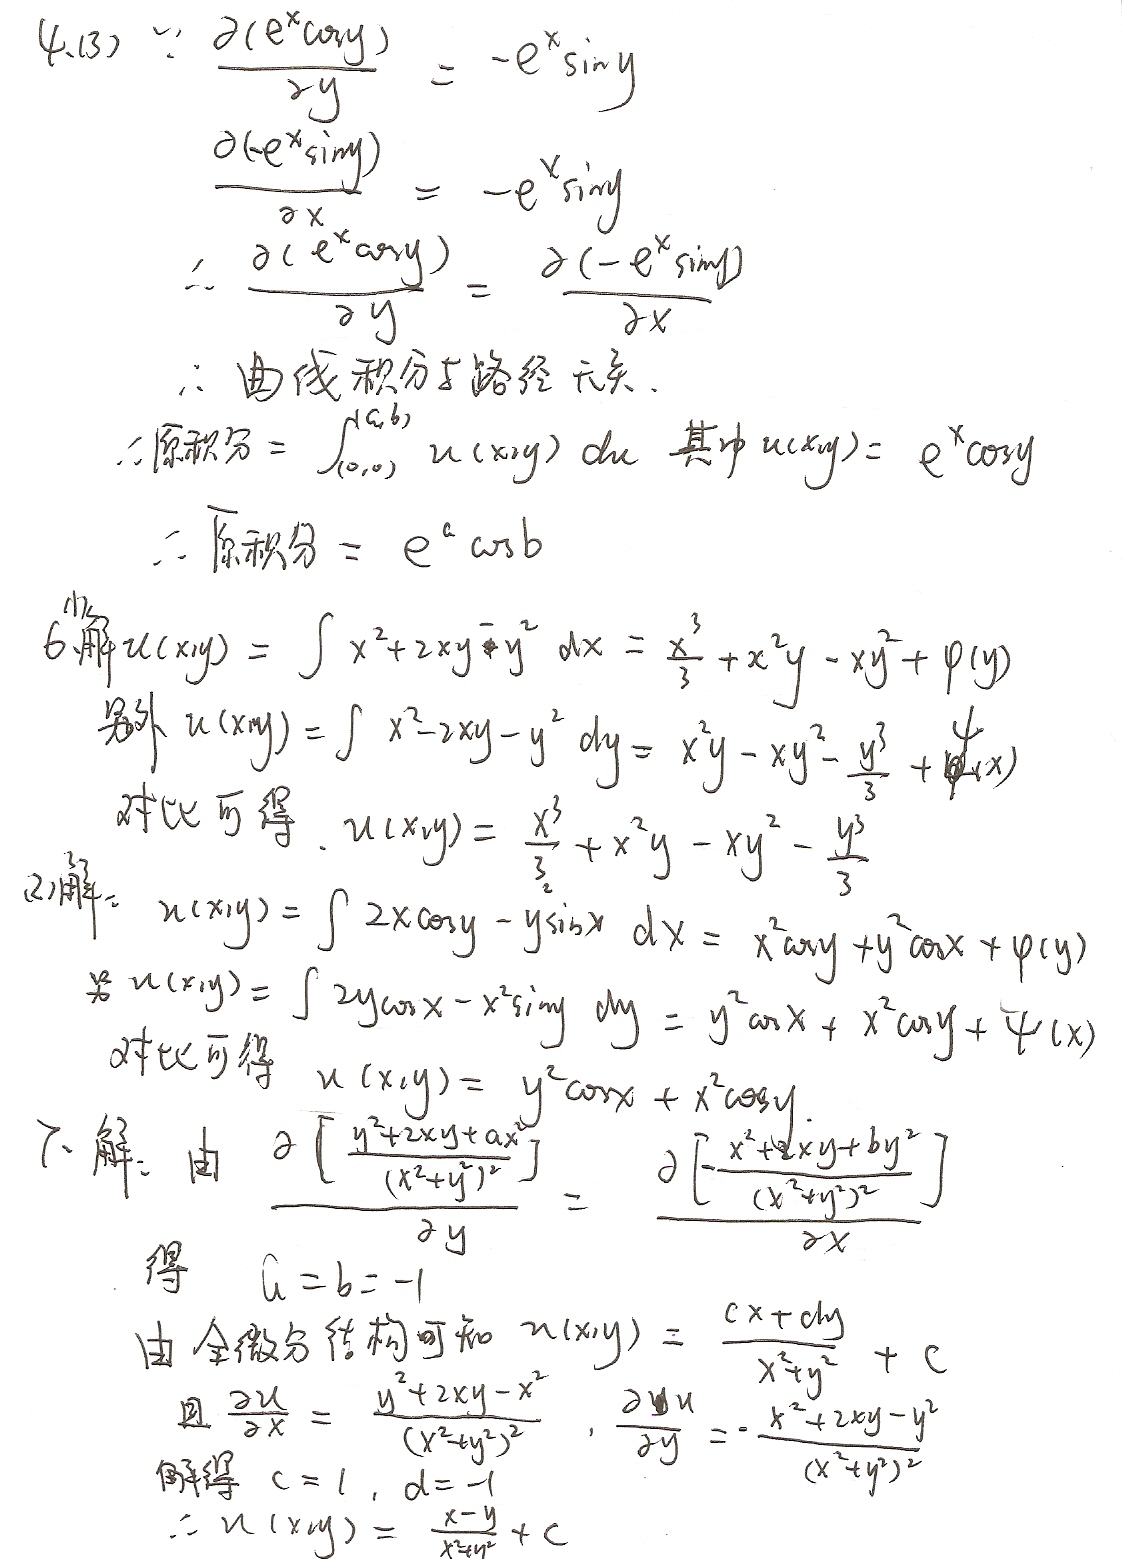 4.(3) ∵ ∂(e^x cosy)/∂y = -e^x siny
∂(-e^x siny)/∂x = -e^x siny
∴ ∂(e^x cosy)/∂y = ∂(-e^x siny)/∂x
∴ 曲线积分与路径无关.
∴原积分 = ∫_(0,0)^(a,b) u(x,y) du 其中 u(x,y) = e^x cosy
∴ 原积分 = e^a cosb
6.(1)解 u(x,y) = ∫ x²+2xy-y² dx = x³/3 + x²y - xy² + φ(y)
另外 u(x,y) = ∫ x²-2xy-y² dy = x²y - xy² - y³/3 + ψ(x)
对比可得. u(x,y) = x³/3 + x²y - xy² - y³/3
(2)解: u(x,y) = ∫ 2xcosy - y²sinx dx = x²cosy + y²cosx + φ(y)
另 u(x,y) = ∫ 2ycosx - x²siny dy = y²cosx + x²cosy + ψ(x)
对比可得 u(x,y) = y²cosx + x²cosy.
7. 解: 由 ∂[(y²+2xy+ax²)/(x²+y²)²]/∂y = ∂[-(x²+2xy+by²)/(x²+y²)²]/∂x
得 a = b = -1
由全微分结构可知 u(x,y) = (cx+dy)/(x²+y²) + C
且 ∂u/∂x = (y²+2xy-x²)/(x²+y²)² , ∂u/∂y = -(x²+2xy-y²)/(x²+y²)²
解得 c = 1, d = -1
∴ u(x,y) = (x-y)/(x²+y²) + C